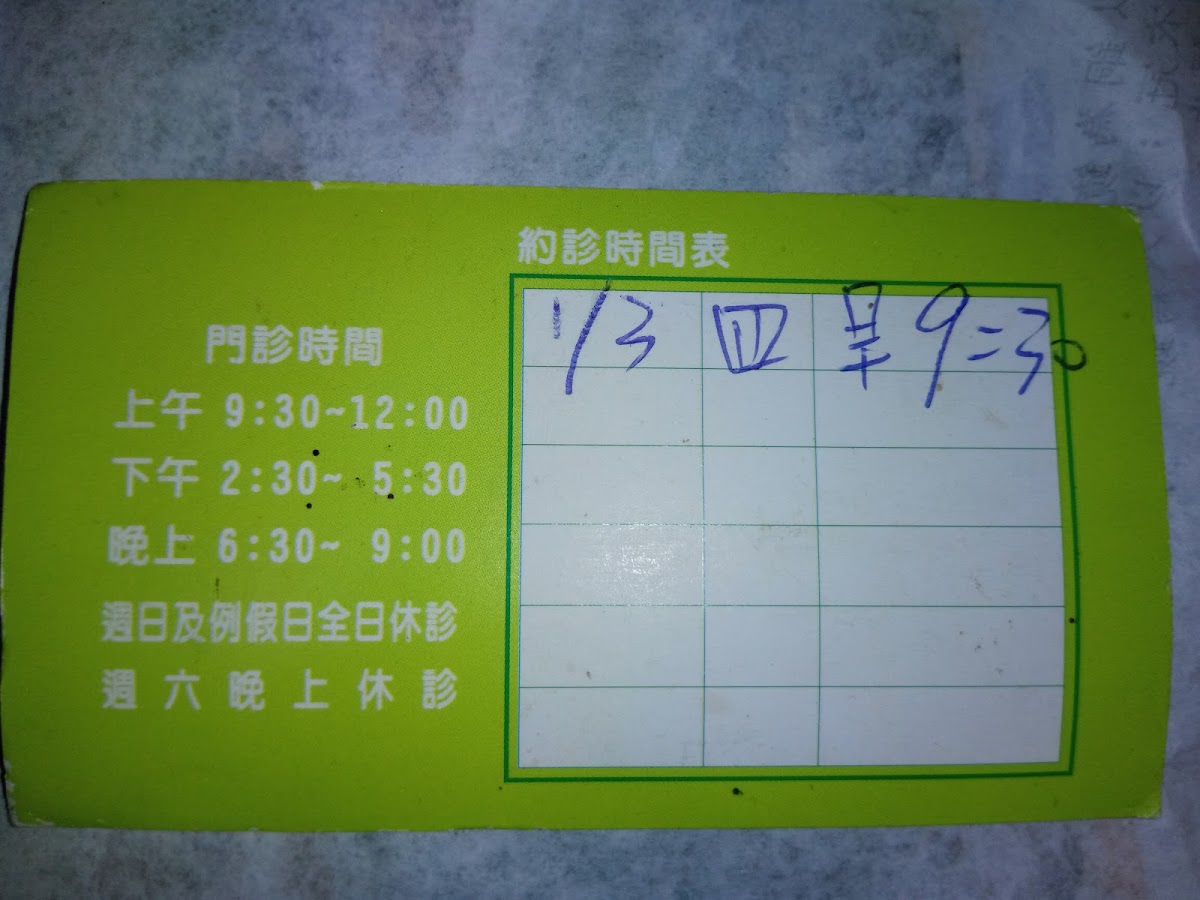 約診時間表
1/3 四 早9:30
門診時間
上午 9:30~12:00
下午 2:30~ 5:30
晚上 6:30~ 9:00
週日及例假日全日休診
週六晚上休診